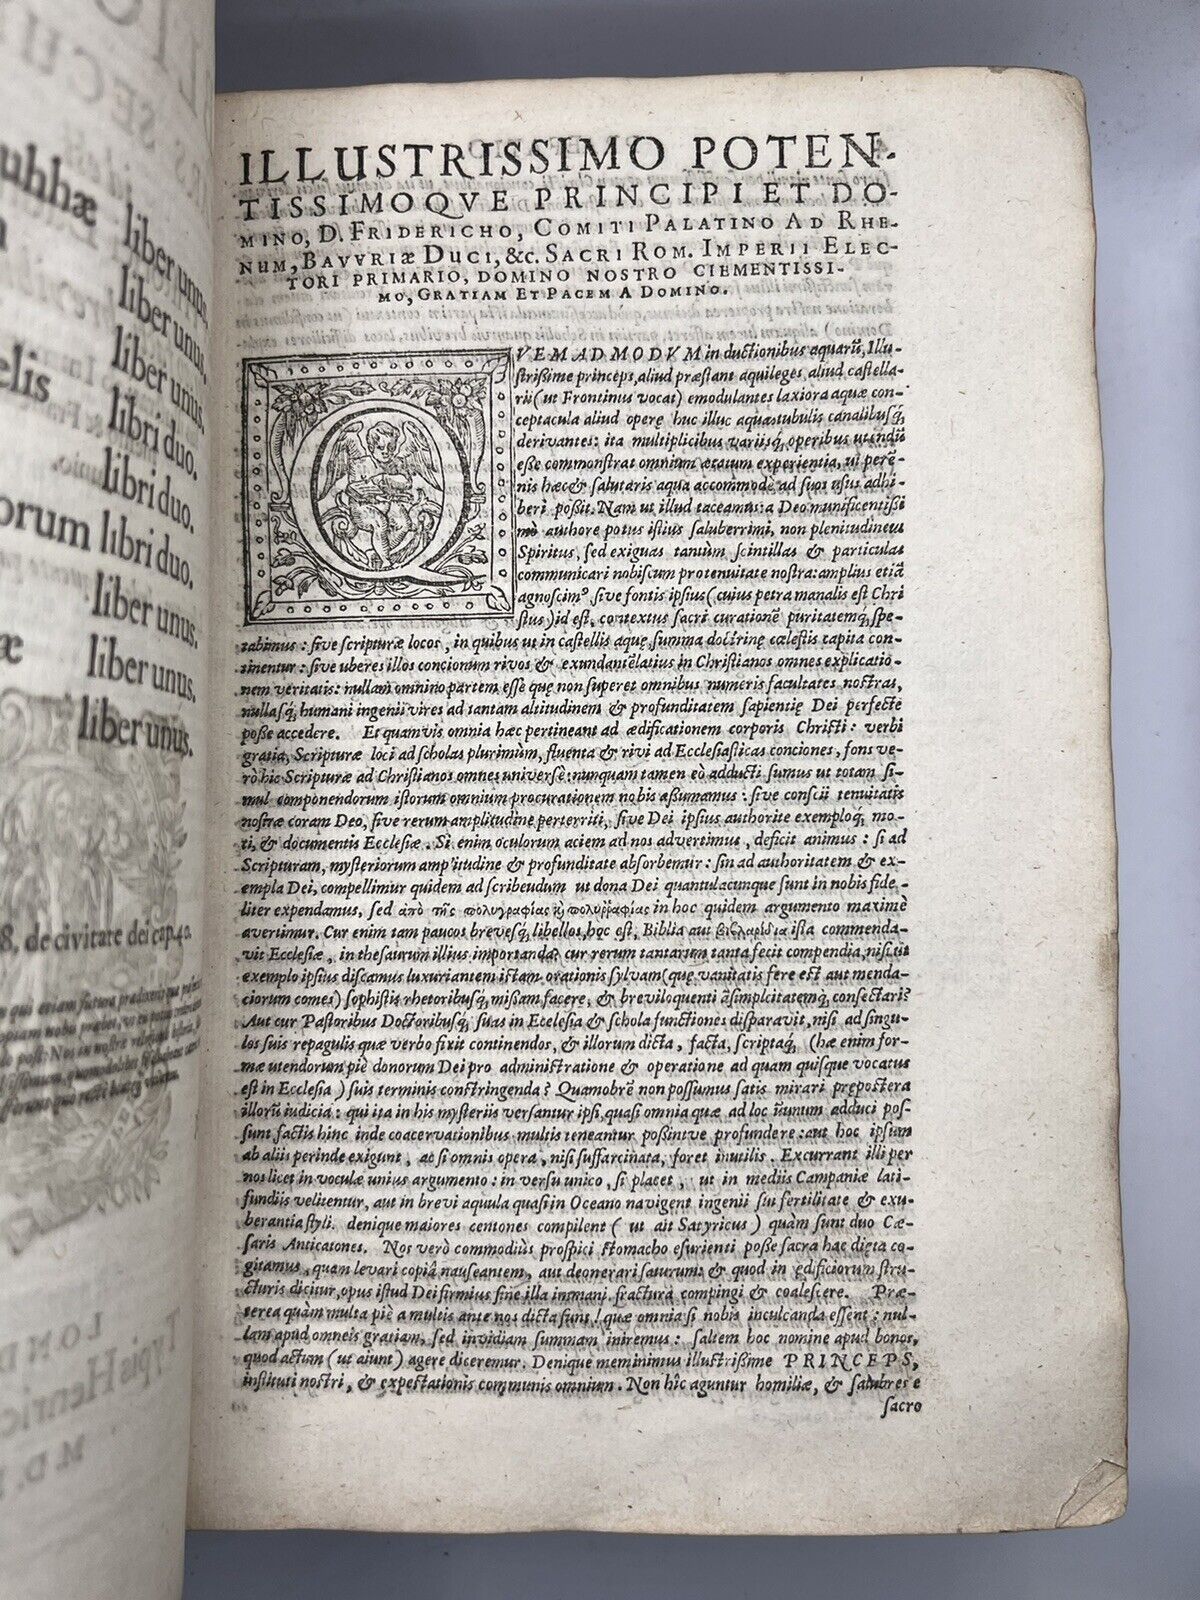 uhhæ liber unus.
m liber unus.
liber unus.
elis libri duo.
libri duo.
orum libri duo.
liber unus.
æ liber unus.
liber unus.
8, de civitate dei cap. 40.
LOND
M. D.
ILLUSTRISSIMO POTEN-
TISSIMOQVE PRINCIPI ET DO-
MINO, D. FRIDERICHO, COMITI PALATINO AD RHE-
NUM, BAVVRIÆ DUCI, &c. SACRI ROM. IMPERII ELEC-
TORI PRIMARIO, DOMINO NOSTRO CIEMENTISSI-
MO, GRATIAM ET PACEM A DOMINO.
QVEMADMODVM in ductionibus aquarũ, Illu-
strißime princeps, aliud præstant aquileges, aliud castella-
rii (ut Frontinus vocat) emodulantes laxiora aquæ con-
ceptacula aliud operę huc illuc aquas tubulis canalibusq́,
derivantes: ita multiplicibus variisq́, operibus utendũ
eße commonstrat omnium ætatum experientia, ut perē-
nis hæc & salutaris aqua accommodè ad suos usus adhi-
beri poßit. Nam ut illud taceamus: a Deo munificentißi
mò authore potus istius saluberrimi, non plenitudinem
Spiritus, sed exiguas tantùm scintillas & particulas
communicari nobiscum pro tenuitate nostra: amplius etiã
agnoscimꝰ sive fontis ipsius (cujus petra manalis est Chri
stus) id est, contextus sacri curationē puritatemq́, spe-
ctabimus: sive scripturæ locos, in quibus ut in castellis aquę, summa doctrinę cœlestis capita con-
tinentur: sive uberes illos concionum rivos & exundantēlatius in Christianos omnes explicatio-
nem veritatis: nullam omnino partem esse quę non superet omnibus numeris facultates nostras,
nullasq́, humani ingenii vires ad tantam altitudinem & profunditatem sapientię Dei perfectè
poße accedere. Et quamvis omnia hæc pertineant ad ædificationem corporis Christi: verbi
gratia, Scripturæ loci ad scholas plurimùm, fluenta & rivi ad Ecclesiasticas conciones, fons ve-
rò hic Scripturæ ad Christianos omnes universè: nunquam tamen eò adducti sumus ut totam si-
mul componendorum istorum omnium procurationem nobis aßumamus: sive conscii tenuitatis
nostræ coram Deo, sive rerum amplitudine perterriti, sive Dei ipsius authorite exemploq́, mo-
ti, & documentis Ecclesiæ. Si enim oculorum aciem ad nos advertimus, deficit animus: si ad
Scripturam, mysteriorum amp'itudine & profunditate absorbemur: sin ad authoritatem & ex-
empla Dei, compellimur quidem ad scribendum ut dona Dei quantulacunque sunt in nobis fide-
liter expendamus, sed ἀπὸ τῆς πολυγραφίας in hoc quidem argumento maximè
avertimur. Cur enim tam paucos brevesq́, libellos, hoc est, Biblia aut βιβλαρίδια ista commenda-
vit Ecclesiæ, in thesaurum illius importanda? cur rerum tantarum tanta fecit compendia, nisi ut
exemplo ipsius discamus luxuriantem istam orationis sylvam (quę vanitatis fere est aut menda-
ciorum comes) sophistis rhetoribusq́, mißam facere, & breviloquentiã simplicitatemq́, consectari?
Aut cur Pastoribus Doctoribusq́, suas in Ecclesia & schola functiones disparavit, nisi ad singu-
los suis repagulis quæ verbo fixit continendos, & illorum dicta, facta, scriptaq́, (hæ enim for-
mæ utendorum piè donorum Dei pro administratione & operatione ad quam quisque vocatus
est in Ecclesia) suis terminis constringenda? Quamobrē non possumus satis mirari prępostera
illorũ iudicia: qui ita in his mysteriis versantur ipsi, quasi omnia quæ ad locũ unum adduci pos-
sunt factis hinc inde coacervationibus multis teneantur poßintve profundere: aut hoc ipsum
ab aliis perinde exigunt, ac si omnis opera, nisi suffarcinata, foret inutilis. Excurrant illi per
nos licet in voculæ unius argumento: in versu unico, si placet, ut in mediis Campaniæ lati-
fundiis velitentur, aut in brevi aquula quasi in Oceano navigent ingenii sui fertilitate & exu-
berantia styli. denique maiores centones compilent (ut ait Satyricus) quàm sunt duo Cæ-
saris Anticatones. Nos verò commodiùs prospici stomacho esurienti poße sacra hac dięta co-
gitamus, quam levari copiâ nauseantem, aut deonerari saturum: & quod in ędificiorum stru-
cturis dicitur, opus istud Dei firmius sine illa immani fractura compingi & coalescere. Præ-
terea quàm multa piè a multis ante nos dicta sunt! quæ omnia si nobis inculcanda essent: nul-
lam apud omneis gratiam, sed invidiam summam iniremus: saltem hoc nomine apud bonos,
quod actum (ut aiunt) agere diceremur. Denique meminimus illustrißime PRINCEPS,
instituti nostri, & expectationis communis omnium. Non hîc aguntur homiliæ, & salubres e
sacro